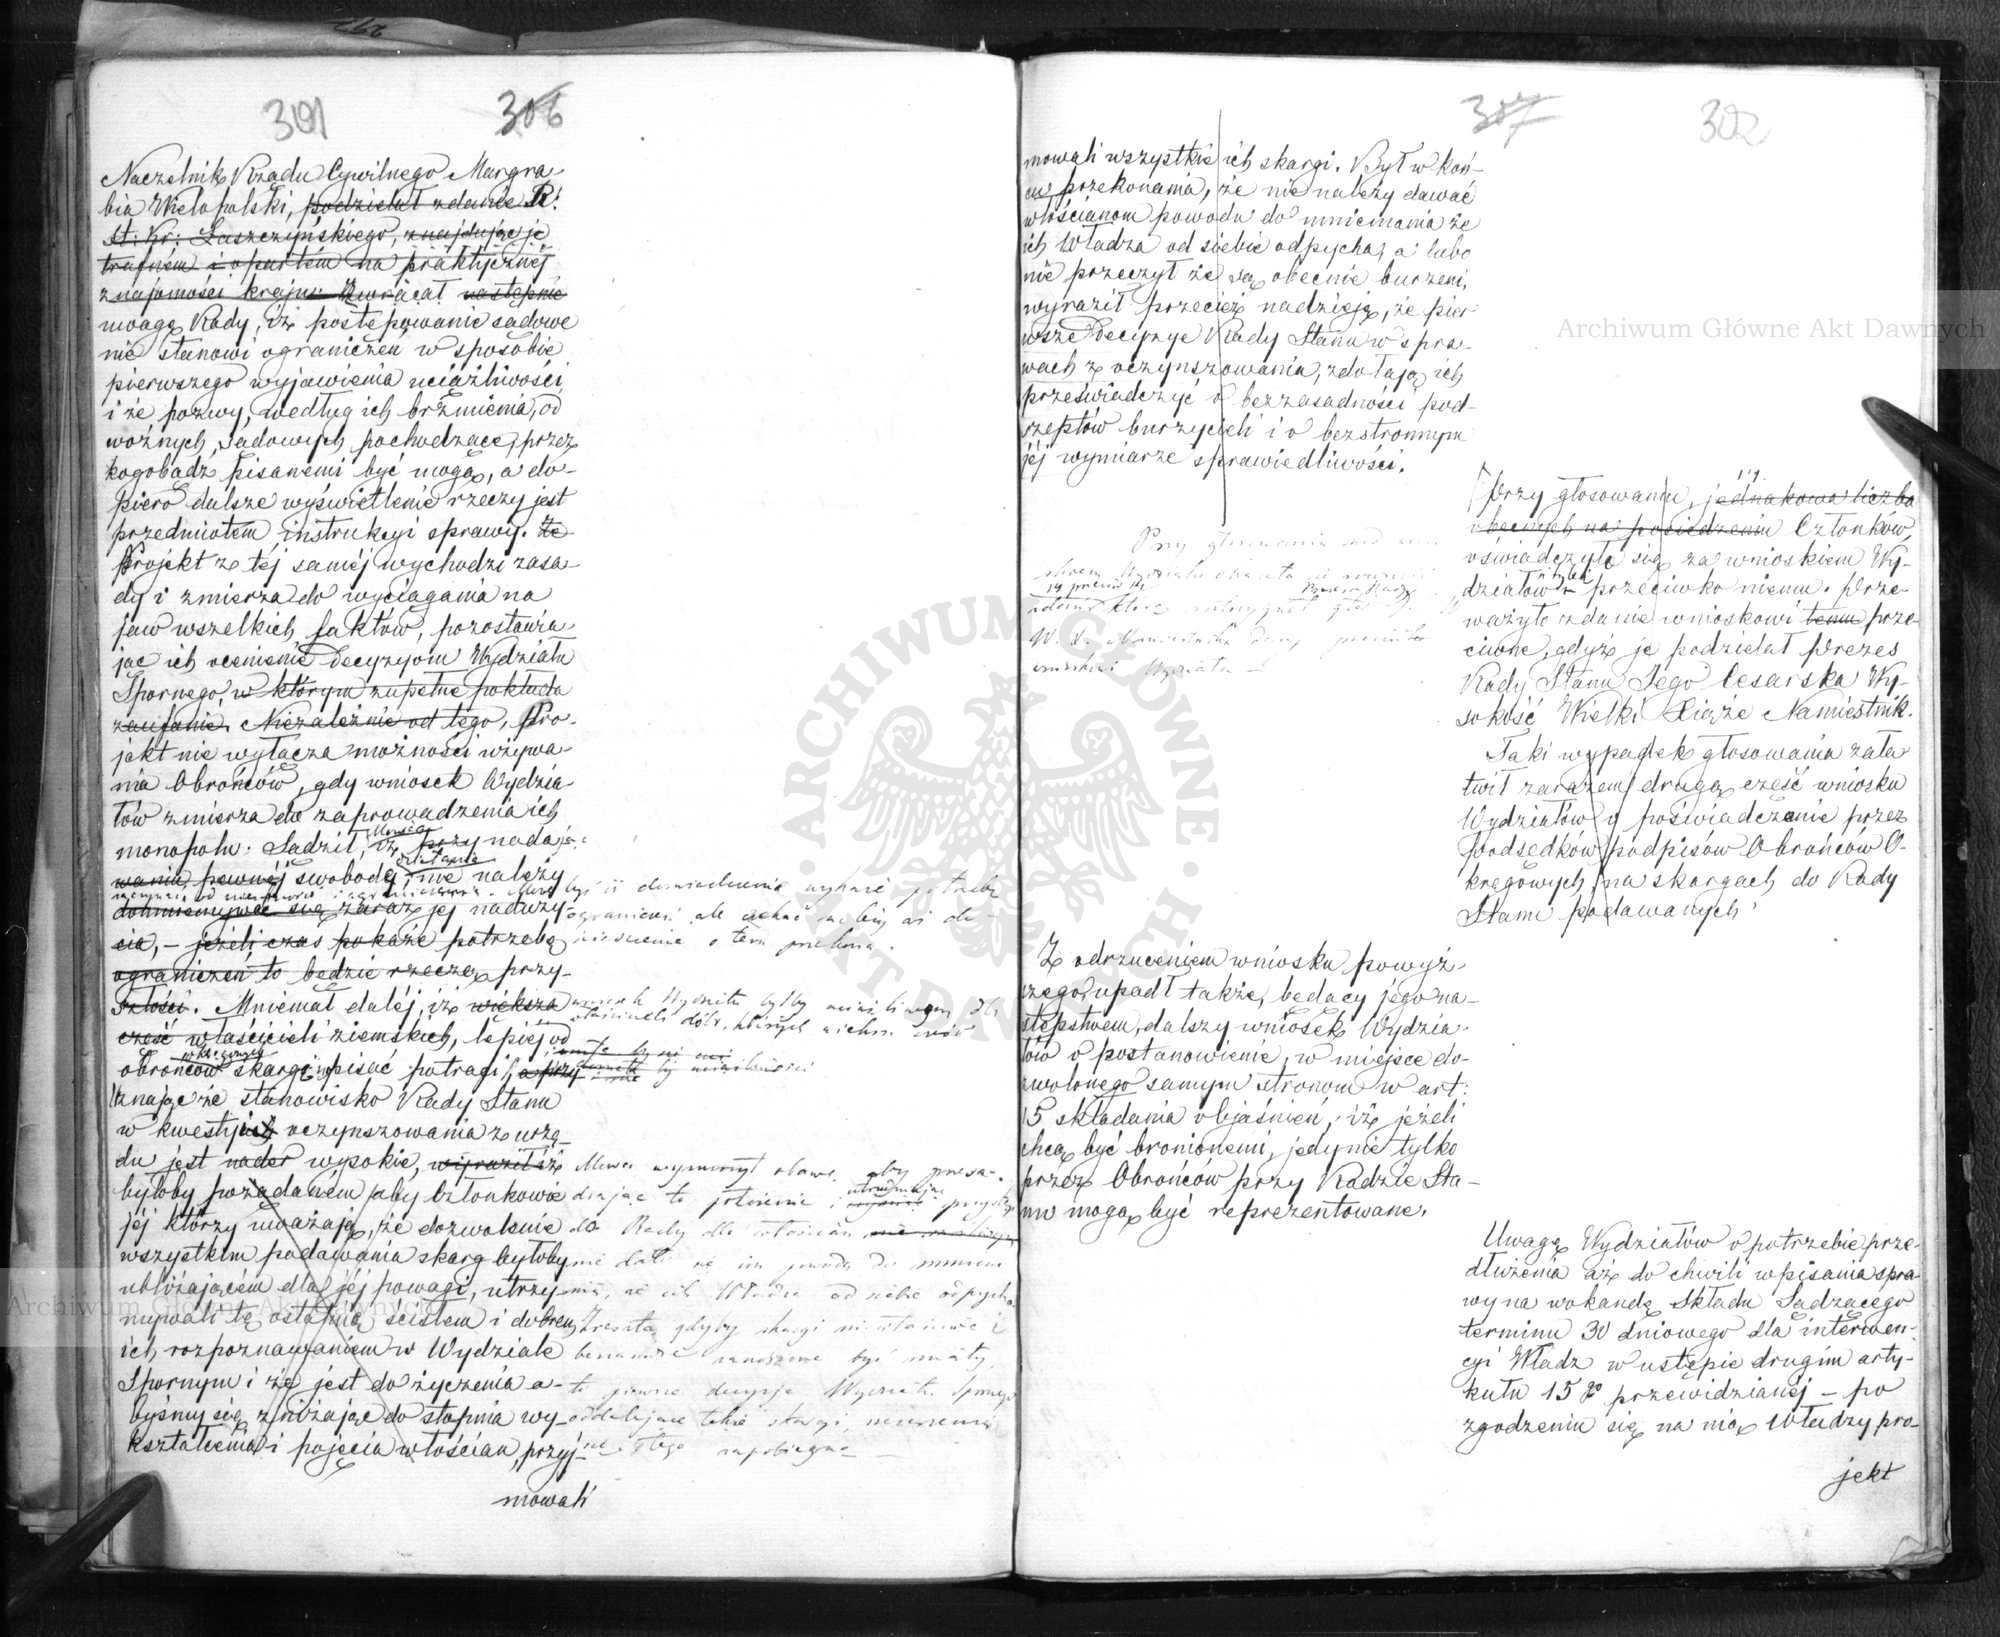 301 306
Naczelnik Rządu Cywilnego Margra-
bia Wielopolski, podzielał zdanie R:
St: Kr: Łaszczyńskiego, znajdując je
trafném i opartém na praktycznéj
znajomości kraju: Zwracał następnie
uwagę Rady, iż postępowanie sądowe
nie stanowi ograniczeń w sposobie
pierwszego wyjawienia uciążliwości
i że pozwy, według ich brzmienia, od
woźnych sądowych pochodzące, przez
kogobądź pisanemi być mogą, a do-
piero dalsze wyświetlenie rzeczy jest
przedmiotem instrukcyi sprawy. Że
Projekt z téj saméj wychodzi zasa-
dy i zmierza do wyciągania na
jaw wszelkich faktów, pozostawia-
jąc ich ocenienie Decyzyom Wydziału
Spornego, w którym zupełne pokłada
zaufanie. Niezależnie od tego, Pro-
jekt nie wyłącza możności używa-
nia Obrońców, gdy wniosek Wydzia-
łów zmierza do zaprowadzenia ich
monopolu. Sądził, iż przy nada-
wania pewnéj swobody, nie należy
domniemywać się zaraz jej naduży-
cia, – jeżeli czas pokaże potrzebę
ograniczeń, to będzie rzeczą przy-
szłości. Mniemał daléj, iż większa
część właścicieli ziemskich, lepiéj od
obrońców skargi pisać potrafi, a przy-
znając że stanowisko Rady Stanu
w kwestyjach oczynszowania z urzę-
du jest nader wysokie, wyraził iż
byłoby pożądaném aby Członkowie
jéj którzy uważają, że dozwolenie
wszystkim podawania skarg byłoby
ubliżającém dla jéj powagi, utrzy-
mywali tę ostatnią ścisłem i dobrem
ich rozpoznawaniem w Wydziale
Spornym i że jest do życzenia a-
byśmy się zniżając do stopnia wy-
kształcenia i pojęcia włościan, przyj-
mowali
być iż doświadczenie wykaże potrzebę
ograniczeń ale czekać należy aż do-
świadczenie o tem przekona.
wniosek Wydziału byłby uciążliwym dla
właścicieli dóbr, których
Mówca wynurzył obawę, aby przesą-
dzając to położenie i utrudniając przystęp
do Rady dla włościan
nie dali się im powodu do mniema-
nia, że ich Władza od siebie odpycha.
Zresztą gdyby skargi niewłaściwe i
bezzasadne zanoszone być miały,
to pewne decyzje Wydziału Spornego
oddalające takie skargi,
złego zapobiegną
307 302
mowali wszystkie ich skargi. Był w koń-
cu przekonania, że nie należy dawać
włościanom powodu do mniemania że
ich Władza od siebie odpycha, a lubo
nie przeczył że są obecnie burzeni,
wyraził przecież nadzieję, że pier-
wsze Decyzye Rady Stanu w spra-
wach z oczynszowania, zdołają ich
przeświadczyć o bezzasadności pod-
szeptów burzycieli i o bezstronnym
jéj wymiarze sprawiedliwości.
Przy głosowaniu nad
19 przeciw
W. X. Namiestnika dany przeciwko
wnioskowi Wydziału –
Przy głosowaniu, jednakowa liczba
obecnych na posiedzeniu Członków,
oświadczyło się za wnioskiem Wy-
działów i tyleż przeciwko niemu. Prze-
ważyło zdanie wnioskowi temu prze-
ciwne, gdyż je podzielał Prezes
Rady Stanu Jego Cesarska Wy-
sokość Wielki Xiąże Namiestnik.
Taki wypadek głosowania zała-
twił zarazem drugą część wniosku
Wydziałów o poświadczanie przez
Podsędków podpisów Obrońców O-
kręgowych, na skargach do Rady
Stanu podawanych.
Z odrzuceniem wniosku powyż-
szego upadł także, będący jego na-
stępstwem, dalszy wniosek Wydzia-
łów o postanowienie, w miejsce do-
zwolonego samym stronom w art:
15 składania objaśnień, iż jeżeli
chcą być bronionemi, jedynie tylko
przez Obrońców przy Radzie Sta-
nu mogą być reprezentowane.
Uwagę Wydziałów o potrzebie prze-
dłużenia aż do chwili wpisania spra-
wy na wokandę Składu Sądzącego
terminu 30 dniowego dla interwen-
cyi Władz w ustępie drugim arty-
kułu 15go przewidzianéj – po
zgodzeniu się na nią Władzy pro-
jekt
Archiwum Główne Akt Dawnych
Archiwum Główne Akt Dawnych
ARCHIWUM GŁÓWNE AKT DAWNYCH